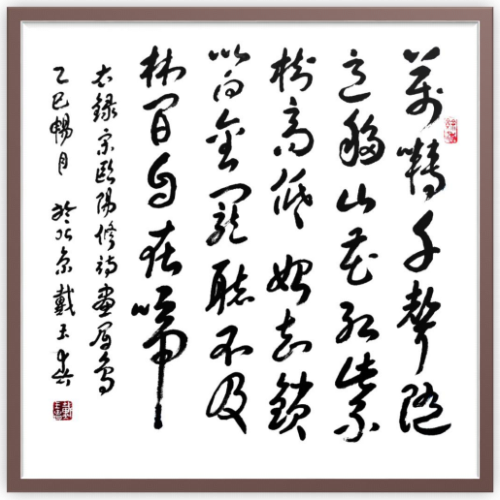 萬囀千聲隨
意移山花紅紫
樹高低始知鎖
以向金籠聽不及
林間自在啼
右錄宋歐陽修詩畫眉鳥
乙巳暢月 於北京戴玉